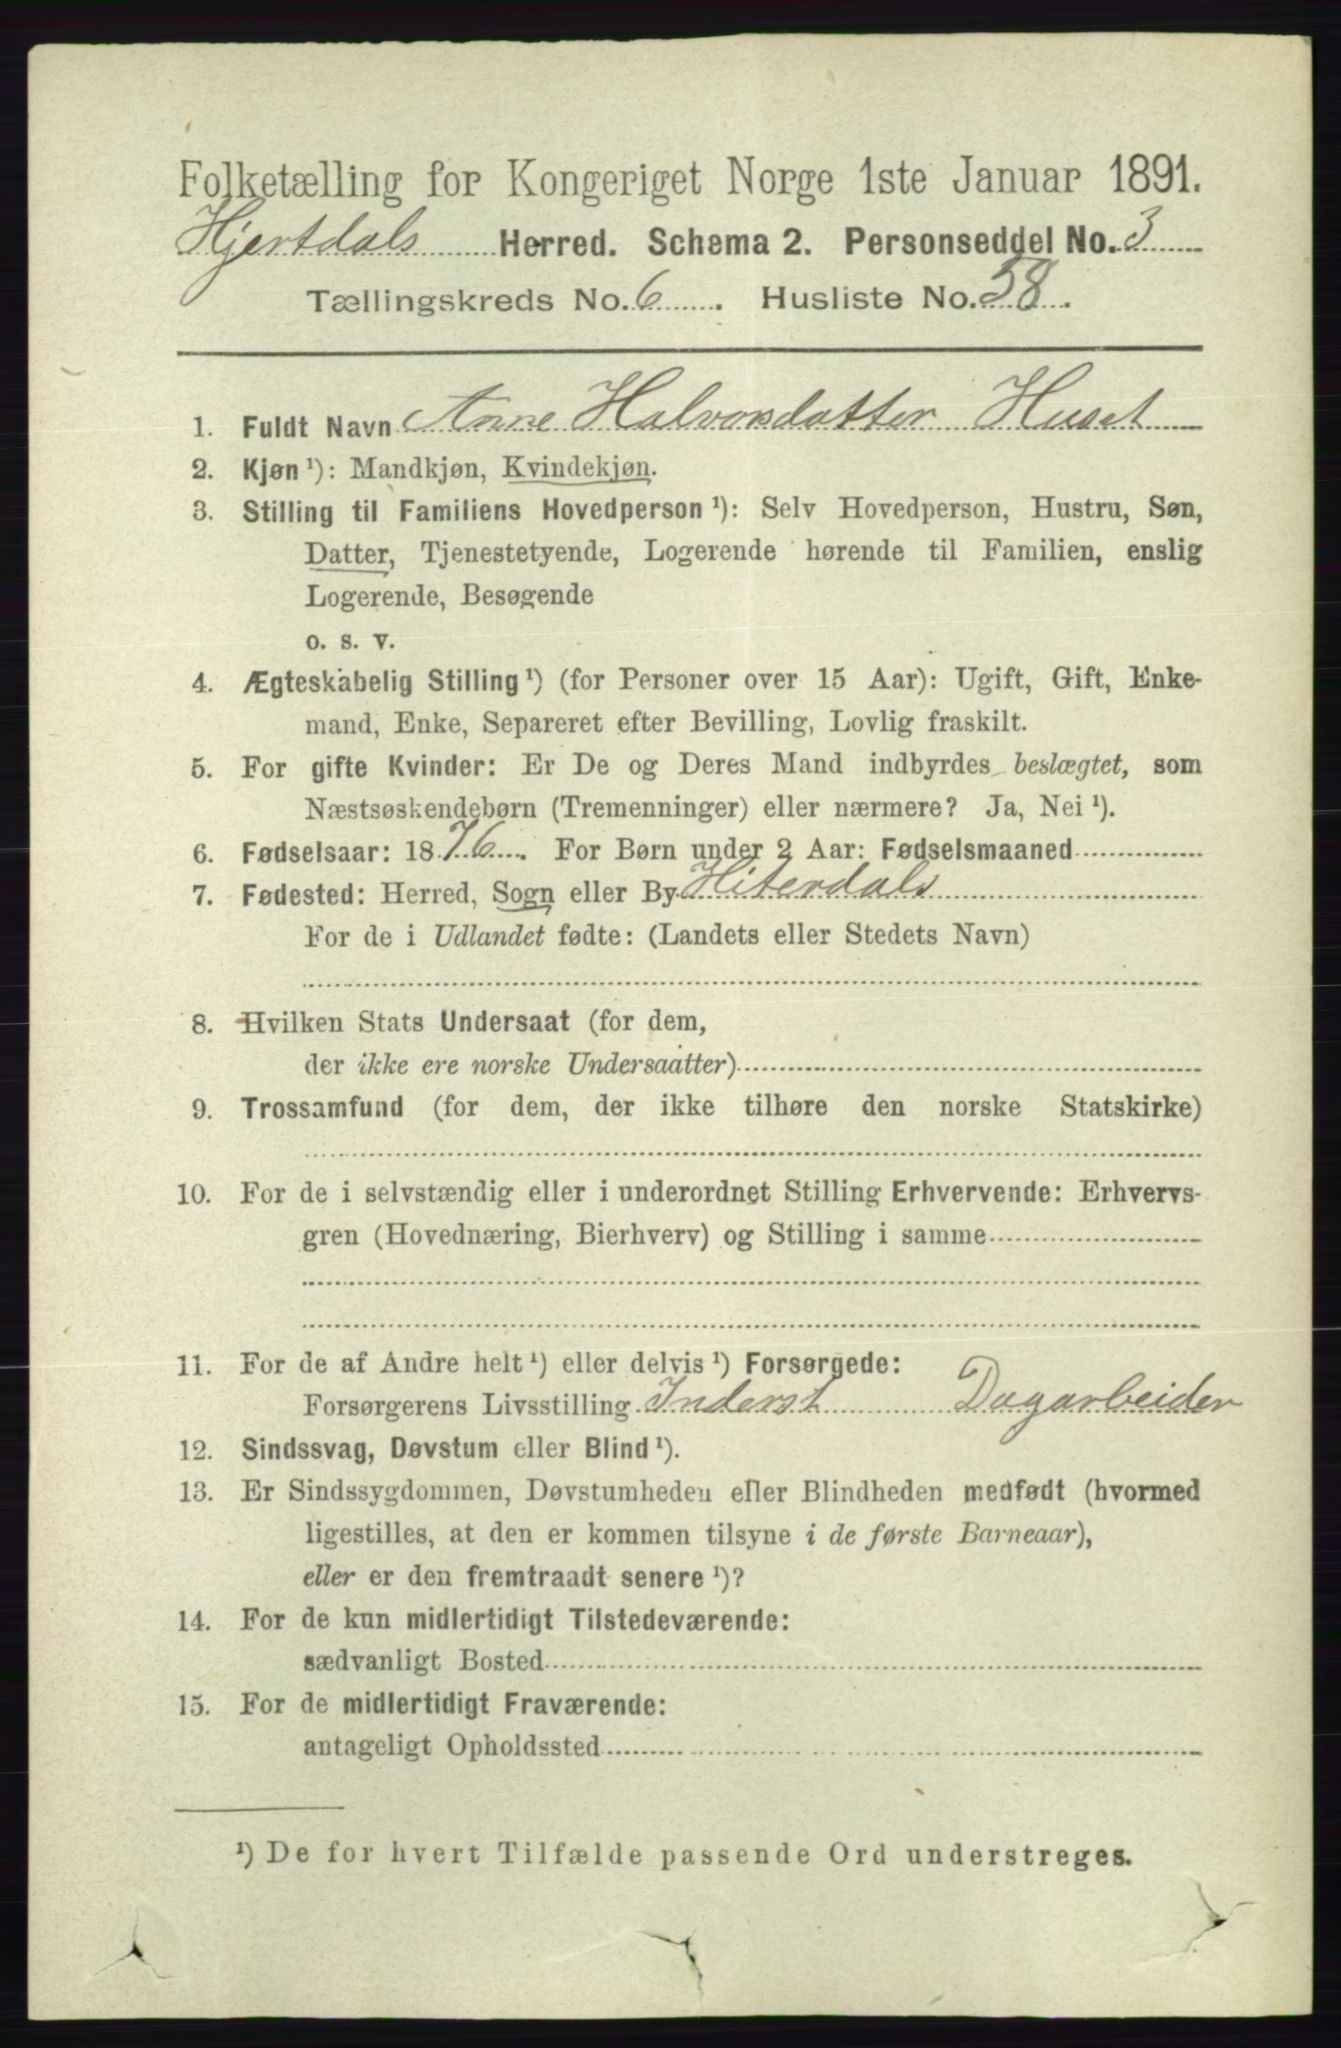 Folketælling for Kongeriget Norge 1ste Januar 1891.
Hjertdals Herred. Schema 2. Personseddel No. 3
Tællingskreds No. 6. Husliste No. 58.
1. Fuldt Navn Anne Halvorsdatter Huset
2. Kjøn ¹): Mandkjøn, Kvindekjøn.
3. Stilling til Familiens Hovedperson ¹): Selv Hovedperson, Hustru, Søn,
Datter, Tjenestetyende, Logerende hørende til Familien, enslig
Logerende, Besøgende
o. s. v.
4. Ægteskabelig Stilling ¹) (for Personer over 15 Aar): Ugift, Gift, Enke-
mand, Enke, Separeret efter Bevilling, Lovlig fraskilt.
5. For gifte Kvinder: Er De og Deres Mand indbyrdes beslægtet, som
Næstsøskendebørn (Tremenninger) eller nærmere? Ja, Nei ¹).
6. Fødselsaar: 1876. For Børn under 2 Aar: Fødselsmaaned
7. Fødested: Herred, Sogn eller By Hiterdals
For de i Udlandet fødte: (Landets eller Stedets Navn)
8. Hvilken Stats Undersaat (for dem,
der ikke ere norske Undersaatter)
9. Trossamfund (for dem, der ikke tilhøre den norske Statskirke)
10. For de i selvstændig eller i underordnet Stilling Erhvervende: Erhvervs-
gren (Hovednæring, Bierhverv) og Stilling i samme
11. For de af Andre helt ¹) eller delvis ¹) Forsørgede:
Forsørgerens Livsstilling Inderst Dagarbeider
12. Sindssvag, Døvstum eller Blind ¹).
13. Er Sindssygdommen, Døvstumheden eller Blindheden medfødt (hvormed
ligestilles, at den er kommen tilsyne i de første Barneaar),
eller er den fremtraadt senere ¹)?
14. For de kun midlertidigt Tilstedeværende:
sædvanligt Bosted
15. For de midlertidigt Fraværende:
antageligt Opholdssted
¹) De for hvert Tilfælde passende Ord understreges.